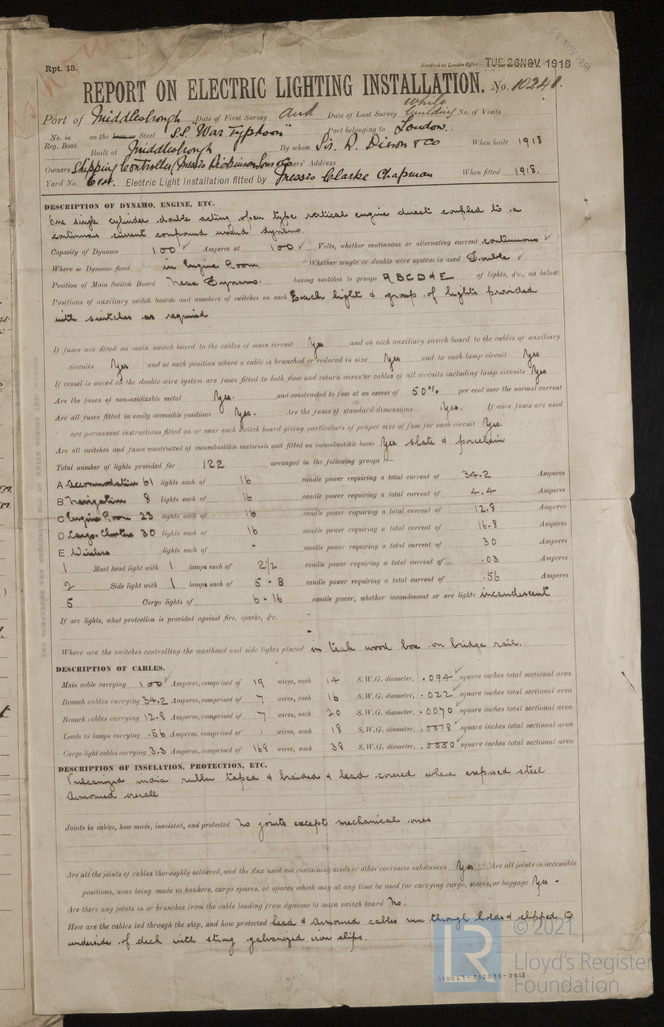 Rpt. 13.
Received at London Office TUE. 26 NOV. 1918
REPORT ON ELECTRIC LIGHTING INSTALLATION. No. 10241.
Port of Middlesbrough Date of First Survey and Date of Last Survey while building No. of Visits
No. in Reg. Book on the Iron or Steel S.S. "War Typhoon" Port belonging to London
Built at Middlesbrough By whom Sir. R. Dixon & Co When built 1918
Owners Shipping Controller (Messrs Dickinson Sons & Co) Owners' Address
Yard No. Electric Light Installation fitted by Messrs Clarke Chapman When fitted 1918.
DESCRIPTION OF DYNAMO, ENGINE, ETC.
One single cylinder double acting open type vertical engine direct coupled to a
continuous current compound wound dynamo.
Capacity of Dynamo 100 Amperes at 100 Volts, whether continuous or alternating current continuous
Where is Dynamo fixed in Engine Room Whether single or double wire system is used Double
Position of Main Switch Board Near Dynamo. having switches to groups A B C D & E of lights, &c., as below
Positions of auxiliary switch boards and numbers of switches on each Each light & group of lights provided
with switches as required
If fuses are fitted on main switch board to the cables of main circuit Yes and on each auxiliary switch board to the cables of auxiliary
circuits Yes and at each position where a cable is branched or reduced in size Yes and to each lamp circuit Yes
If vessel is wired on the double wire system are fuses fitted to both flow and return wires or cables of all circuits including lamp circuits Yes
Are the fuses of non-oxidizable metal Yes. and constructed to fuse at an excess of 50% per cent over the normal current
Are all fuses fitted in easily accessible positions Yes. Are the fuses of standard dimensions Yes. If wire fuses are used
are permanent instructions fitted on or near each switch board giving particulars of proper size of fuse for each circuit Yes.
Are all switches and fuses constructed of incombustible materials and fitted on incombustible bases Yes slate & porcelain
Total number of lights provided for 122 arranged in the following groups
A Accommodation 61 lights each of 16 candle power requiring a total current of 34.2 Amperes
B Navigation 8 lights each of 16 candle power requiring a total current of 4.4 Amperes
C Engine Room 23 lights each of 16 candle power requiring a total current of 12.8 Amperes
D Cargo Clusters 30 lights each of 16 candle power requiring a total current of 16.8 Amperes
E Wireless lights each of - candle power requiring a total current of 30 Amperes
1 Mast head light with 1 lamps each of candle power requiring a total current of Amperes
2 Side light with 1 lamps each of candle power requiring a total current of .56 Amperes
5 Cargo lights of 6 - 16 candle power, whether incandescent or arc lights incandescent
If arc lights, what protection is provided against fire, sparks, &c. -
Where are the switches controlling the masthead and side lights placed in teak wood box on bridge rail.
DESCRIPTION OF CABLES.
Main cable carrying 100 Amperes, comprised of 19 wires, each 14 S.W.G. diameter, .094 square inches total sectional area
Branch cables carrying 34.2 Amperes, comprised of 7 wires, each 16 S.W.G. diameter, .022 square inches total sectional area
Branch cables carrying 12.8 Amperes, comprised of 7 wires, each 20 S.W.G. diameter, .0070 square inches total sectional area
Leads to lamps carrying .56 Amperes, comprised of 1 wires, each 18 S.W.G. diameter, .0018 square inches total sectional area
Cargo light cables carrying 3.3 Amperes, comprised of 168 wires, each 38 S.W.G. diameter, square inches total sectional area
DESCRIPTION OF INSULATION, PROTECTION, ETC.
Vulcanized india rubber taped & braided & lead covered where exposed steel
Armoured overall
Joints in cables, how made, insulated, and protected No joints except mechanical ones
Are all the joints of cables thoroughly soldered, and the flux used not containing acids or other corrosive substances Yes Are all joints in accessible
positions, none being made in bunkers, cargo spaces, or spaces which may at any time be used for carrying cargo, stores, or baggage Yes -
Are there any joints in or branches from the cable leading from dynamo to main switch board No.
How are the cables led through the ship, and how protected Lead & Armoured cables run through holds & clipped to
underside of deck with strong galvanized iron clips.
© 2021
Lloyd's Register
Foundation